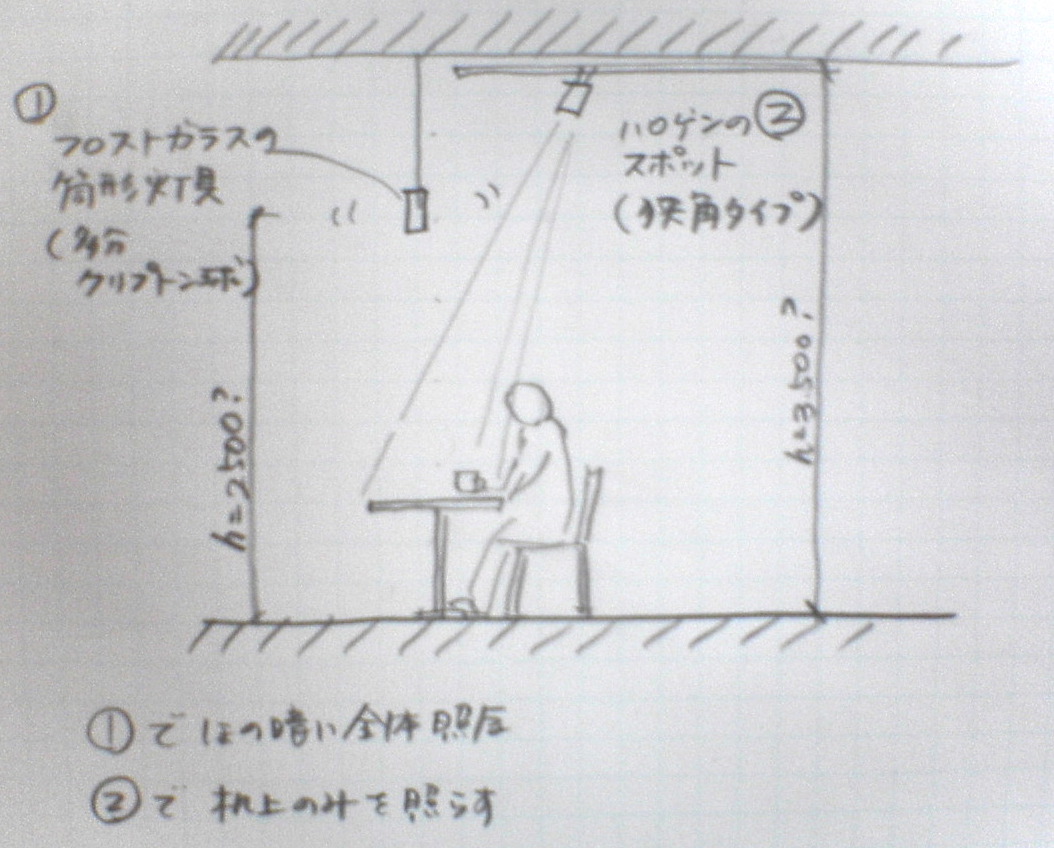 ①
フロストガラスの
筒形灯具
(多分
クリプトン球)
ハロゲンの②
スポット
(狭角タイプ)
h=2500?
h=3500?
①でほの暗い全体照度
②で机上のみを照らす